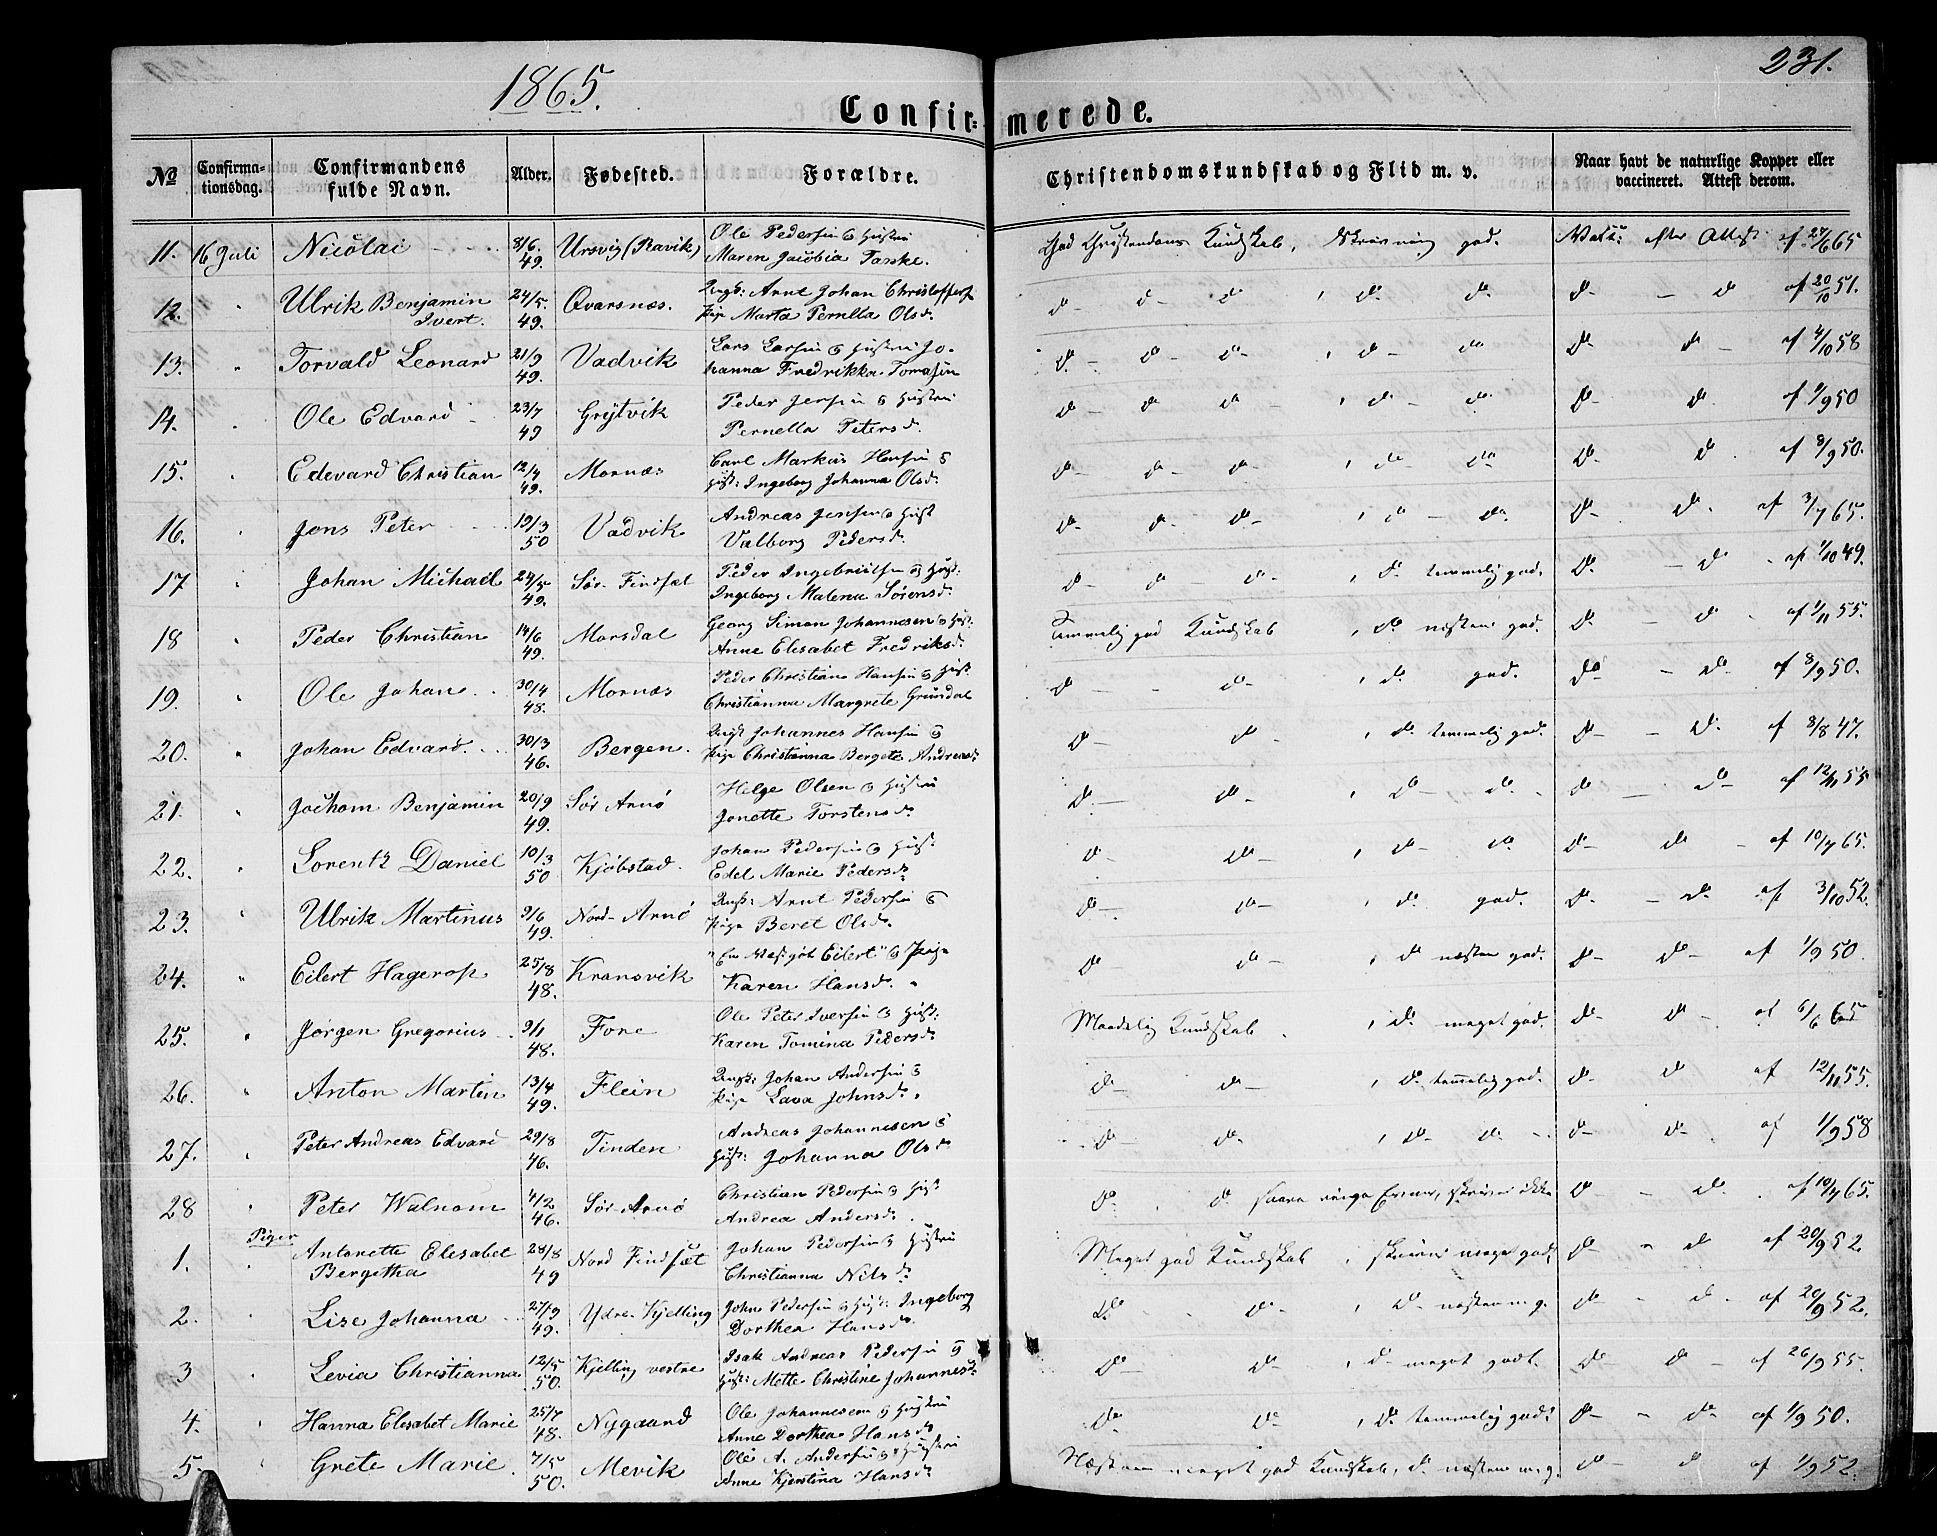 1865.
231.
Confirmerede.
No Confirmationsdag. Confirmandens fulde Navn. Alder. Fødested. Forældre. Christendomskundskab og Flid m. v. Naar havt de naturlige Kopper eller vaccineret. Attest derom.
11. 16 Juli Nicolai 8/6 49. Ursvig (Ravik) Ole Pedersen & Hustru Maren Jacobia Torske. God Christendoms Kundskab, Skrivning god. Vacc: efter Attest af 24/6 65
12. " Ulrik Benjamin Ivert. 24/5 49. Qvarsnæs. Ungk: Arnt Johan Christoffers Pige Marta Pernella Olsd. do - do - do , do. do. do - do af 20/10 51.
13. " Torvald Leonard 21/9 49. Vadvik Lars Larsen & Hustru Johanna Fredrikka Tomasin do - do - do - , do - do do - do - af 4/10 58
14. " Ole Edvard 23/7 49 Grytvik Peder Jensen & Hustru Pernella Petersd. do - do do - , do - do do - do. af 1/9 50
15. " Edevard Christian 12/4 49. Mornæs Carl Markus Hansen & Hust: Ingeborg Johanna Olsd. do - do - do - , do - do do - do. af 8/9 50.
16. " Jens Peter 19/3 50 Vadvik Andreas Jensen & Hust Valborg Pedersd. do - do - do - , do - do. do - do. af 3/7 65.
17 " Johan Michael 24/5 49. Sør-Findsæt Peder Ingebriktsen & Hust: Ingeborg Malena Sørensd. do - do do , do temmelig god. do - do - af 1/10 49.
18 " Peder Christian 14/6 49. Morsdal Georg Simon Johannesen & Hust: Anne Elisabet Fredriksd. Temmelig god Kundskab , do næsten god. do - do - af 1/11 55.
19. " Ole Johan 30/4 48. Mornæs Peder Christian Hansen & Hust. Christianna Margrete Grundal do - do - , do god. do - do - af 8/9 50.
20. " Johan Edvard 30/3 46. Bergen. Ungk Johannes Hansen & Pige Christianna Bergete Andreasd. do - do - , do temmelig god. do - do. af 8/8 47.
21. " Jochom Benjamin 20/9 49. Sør Arnø Helge Olsen & Hustru Jonette Torstensd. do. - do - , do - do - do - do - af 12/11 55
22. " Lorentz Daniel 10/3 50 Kjøbstad. Johan Pedersen & Hust. Edel Marie Pedersd. do - do - , do - do do - do - af 10/7 65.
23. " Ulrik Martinus 9/6 49. Nord-Arnø Ungk: Arnt Pedersen & Pige Beret Olsd. do - do - , do god. do - do af 3/10 52.
24. " Eilert Hagerop 25/8 48. Kransvik "Eilert" & Pige Karen Hansd. do do - , do næsten god. do - do - af 1/9 50
25. " Jørgen Gregorius 9/11 48. Fore Ole Peter Iversen & Hust: Karen Tomina Pedersd. Maadelig Kundskab , do meget god. do - do - af 6/6 65
26. " Anton Martin 13/4 49. Flein Ungk: Johan Andersen & Pige Lava Johnsd. do - do - , do temmelig god. do - do af 12/11 55.
27. " Peter Andreas Edvard 29/8 46. Tinden Andreas Johannesen & Hust: Johanna Olsd do - do - , do - do - do - do - af 1/9 58
28 " Peter Walnom 4/2 46. Sør-Arnø Christian Pedersen & Hust Andrea Andersd. do . do saare ringe Evner, skriver ikke do - do . af 10/7 65.
Piger
1. " Antonette Elesabet Bergitha 28/8 49 Nord Findsæt Johan Pedersen & Hustru Christianna Nilsd. Meget god Kundskab , skriver meget godt do - do af 20/9 52.
2. " Lise Johanna 27/9 49. Ydre Kjelling John Pedersen & Hust: Ingeborg Dorthea Hansd. do - do - , do næsten m g. do - do - af 20/9 52.
3 " Levia Christianna 12/5 50. Kjelling vestre Isak Andreas Pedersen & Hust: Mette Christine Johannesd. do do - , do meget godt. do - do - af 26/9 55.
4. " Hanna Elesabet Marie 25/7 48. Nygaard Ole Johannesen & Hustru Anne Dorthea Hansd. do do - , do temmelig godt do - do - af 1/9 50.
5. " Grete Marie 7/5 50. Mevik Ole A. Andersen & Hustru Anne Kjerstina Hansd. Næsten meget god Kundskab, do næsten m g. do - do af 1/9 52.